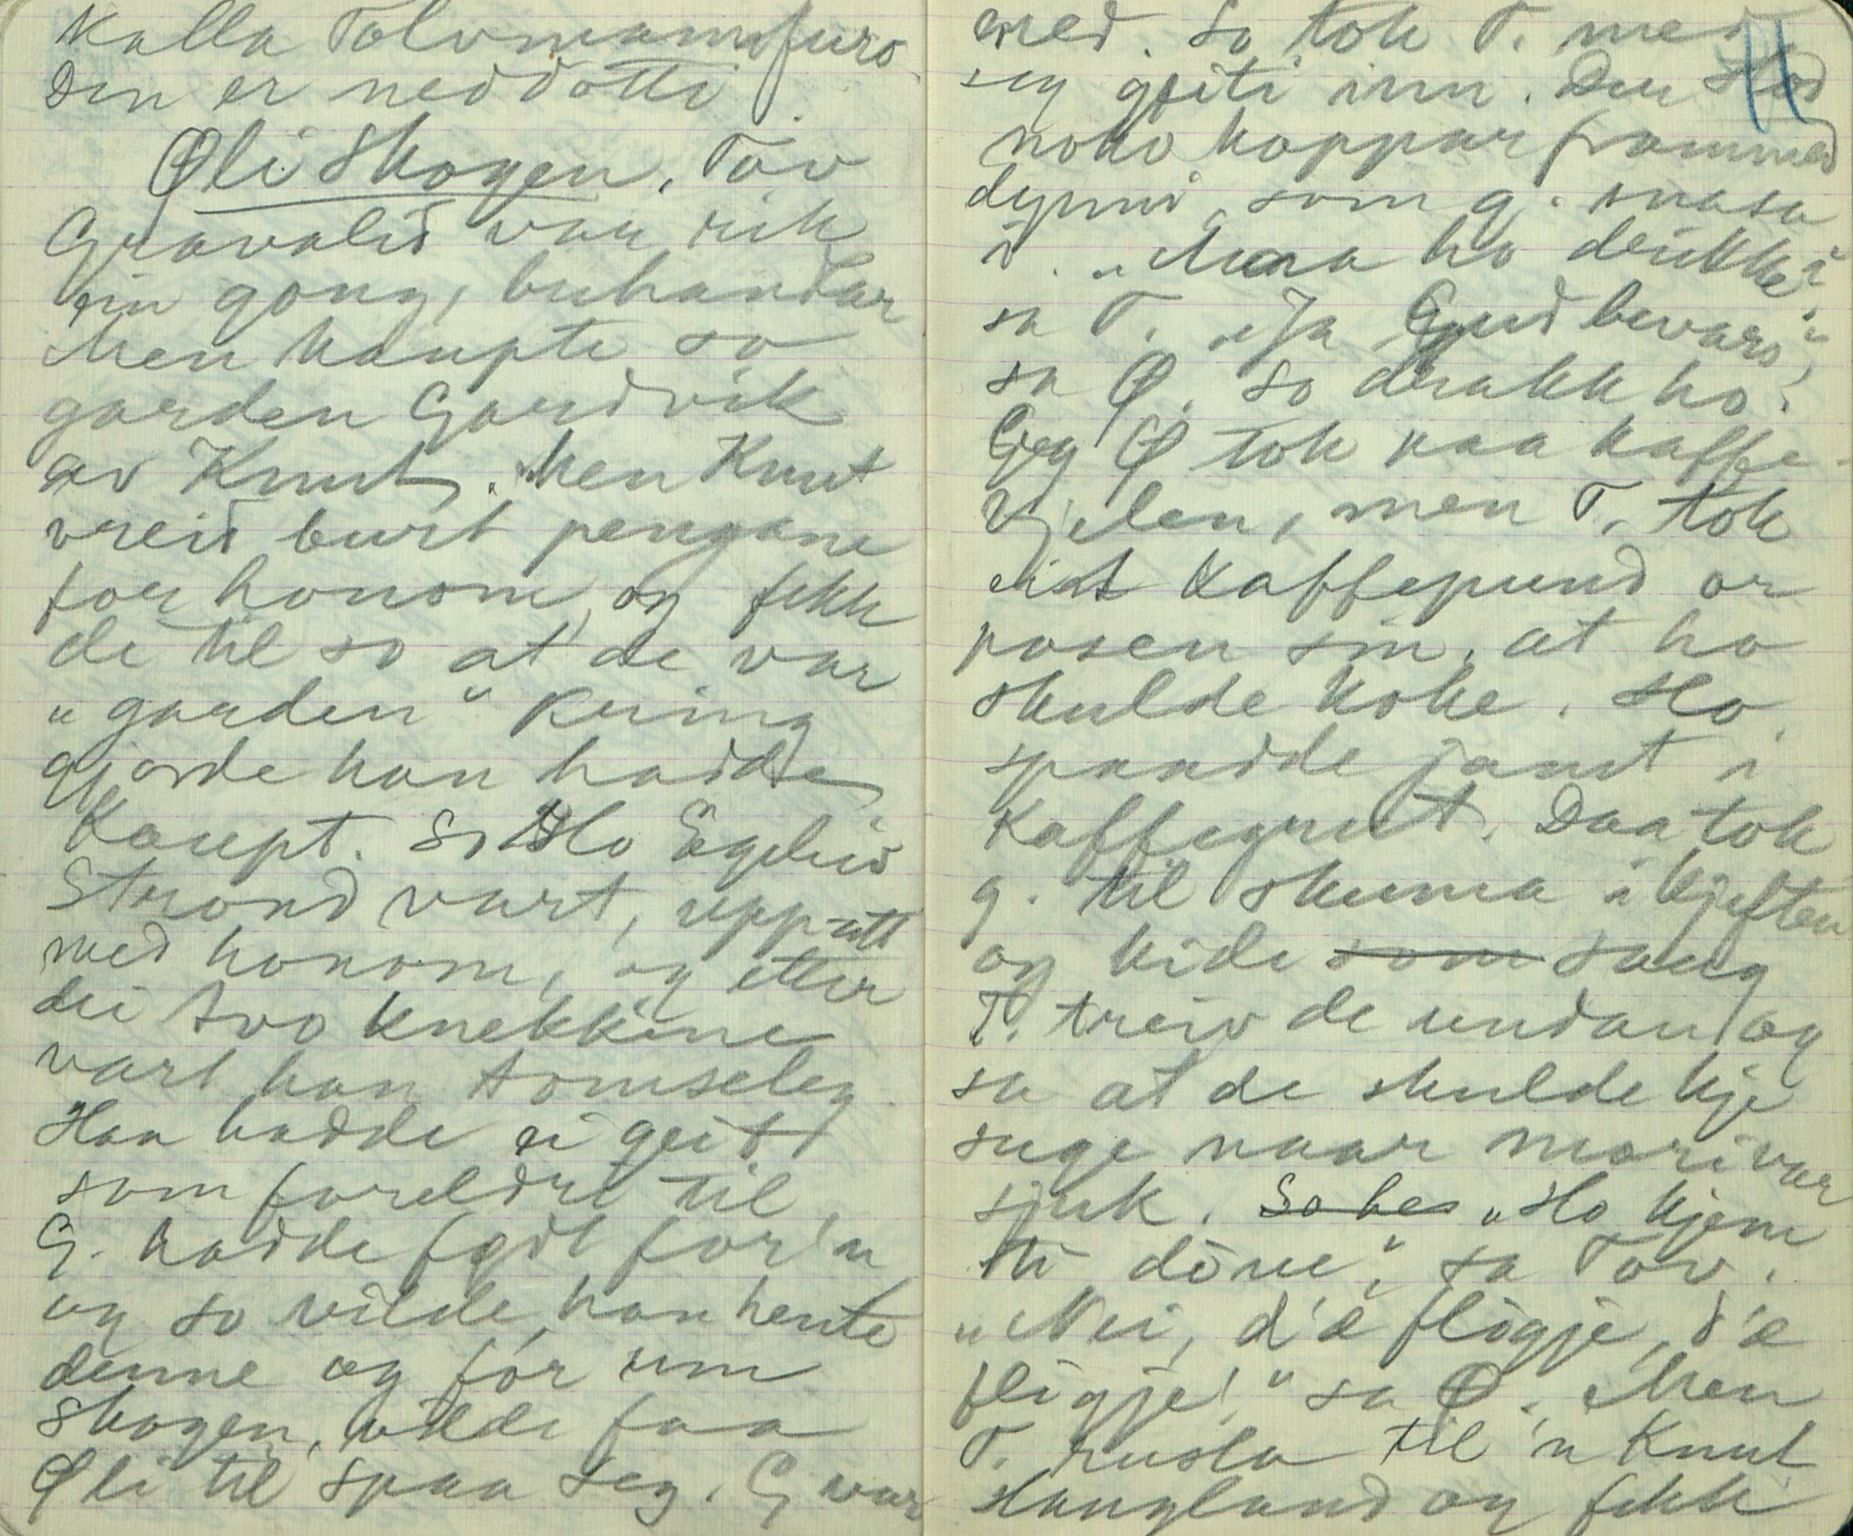 kalla Tolvmannsfuro
den er neddotti
Øli Skogen. Tov
Gravalid var rik
ein gong, buhandlar
Men kaupte so
garden Gardvik
av Knut. Men Knut
vreid burt pengane
for honom, og fekk
de til so at de var
"garden" kring
gjorde han hadde
kaupt. So slo Egeleiv
Strond vart, uppatt
med honom, og etter
dei two knekkine
vart han tomseleg
Han hadde ei geit
som foreldri til
G. hadde født for'n
og so vilde han hente
denne og fór um
Skogen, vilde faa
Øli til spaa seg. G var
med. So tok T. med 11
seg geiti inn. Den stod
noko koppar frammed
dynni, som g. snasa
i. "Maa ho drikke?"
sa T. "Ja Gud bevars",
sa Ø. So drakk ho.
Gjeg Ø tok paa kaffe-
kjelen, men T. tok
eit kaffepund or
posen sin, at ho
skulde koke. Ho
spaadde jamt i
Kaffegrut. Daa tok
g. til skuma i kjeften
og kide som saug
T. treiv de undan og
sa at de skulde kje
suge naar mori var
sjuk. So hes "Ho kjem
ti döue", sa Tov.
"Nei, d'æ fligje, d'æ
fligje!" sa Ø. Men
T. rusla til 'n Knut
Haugland og fekk